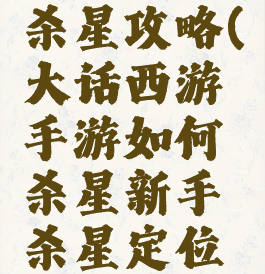 杀星攻略(
大话西游
手游如何
杀星新手
杀星定位